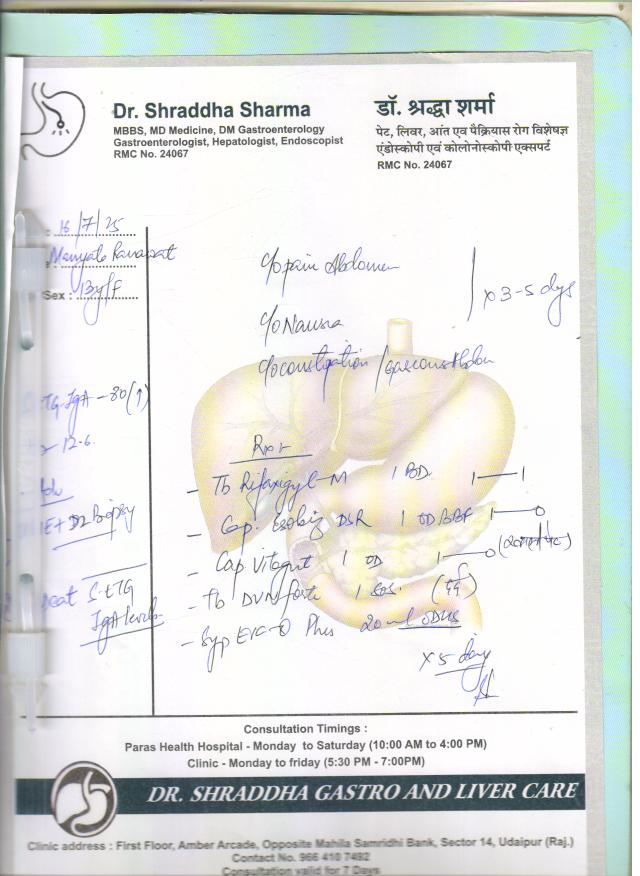 Dr. Shraddha Sharma
MBBS, MD Medicine, DM Gastroenterology
Gastroenterologist, Hepatologist, Endoscopist
RMC No. 24067
डॉ. श्रद्धा शर्मा
पेट, लिवर, आंत एव पैंक्रियास रोग विशेषज्ञ
एंडोस्कोपी एवं कोलोनोस्कोपी एक्सपर्ट
RMC No. 24067
: 16/7/25
Sex : 13y/F
c/o pain Abdomen
x 3-5 days
c/o Nausea
c/o constipation /
TTG IgA - 80 (↑)
12.6
Adv
D2 Biopsy
S. tTG
IgA levels
Rx
- Tb Rifaxigyl-M 1 BD 1—1
- Cap. DSR 1 OD BBF 1—0
- Cap Vitagut 1 OD 1—0
- Tb forte 1 sos.
- Syp Plus 20ml ODHS
x 5 day
Consultation Timings :
Paras Health Hospital - Monday to Saturday (10:00 AM to 4:00 PM)
Clinic - Monday to friday (5:30 PM - 7:00PM)
DR. SHRADDHA GASTRO AND LIVER CARE
Clinic address : First Floor, Amber Arcade, Opposite Mahila Samridhi Bank, Sector 14, Udaipur (Raj.)
Contact No. 966 410 7492
Consultation valid for 7 Days